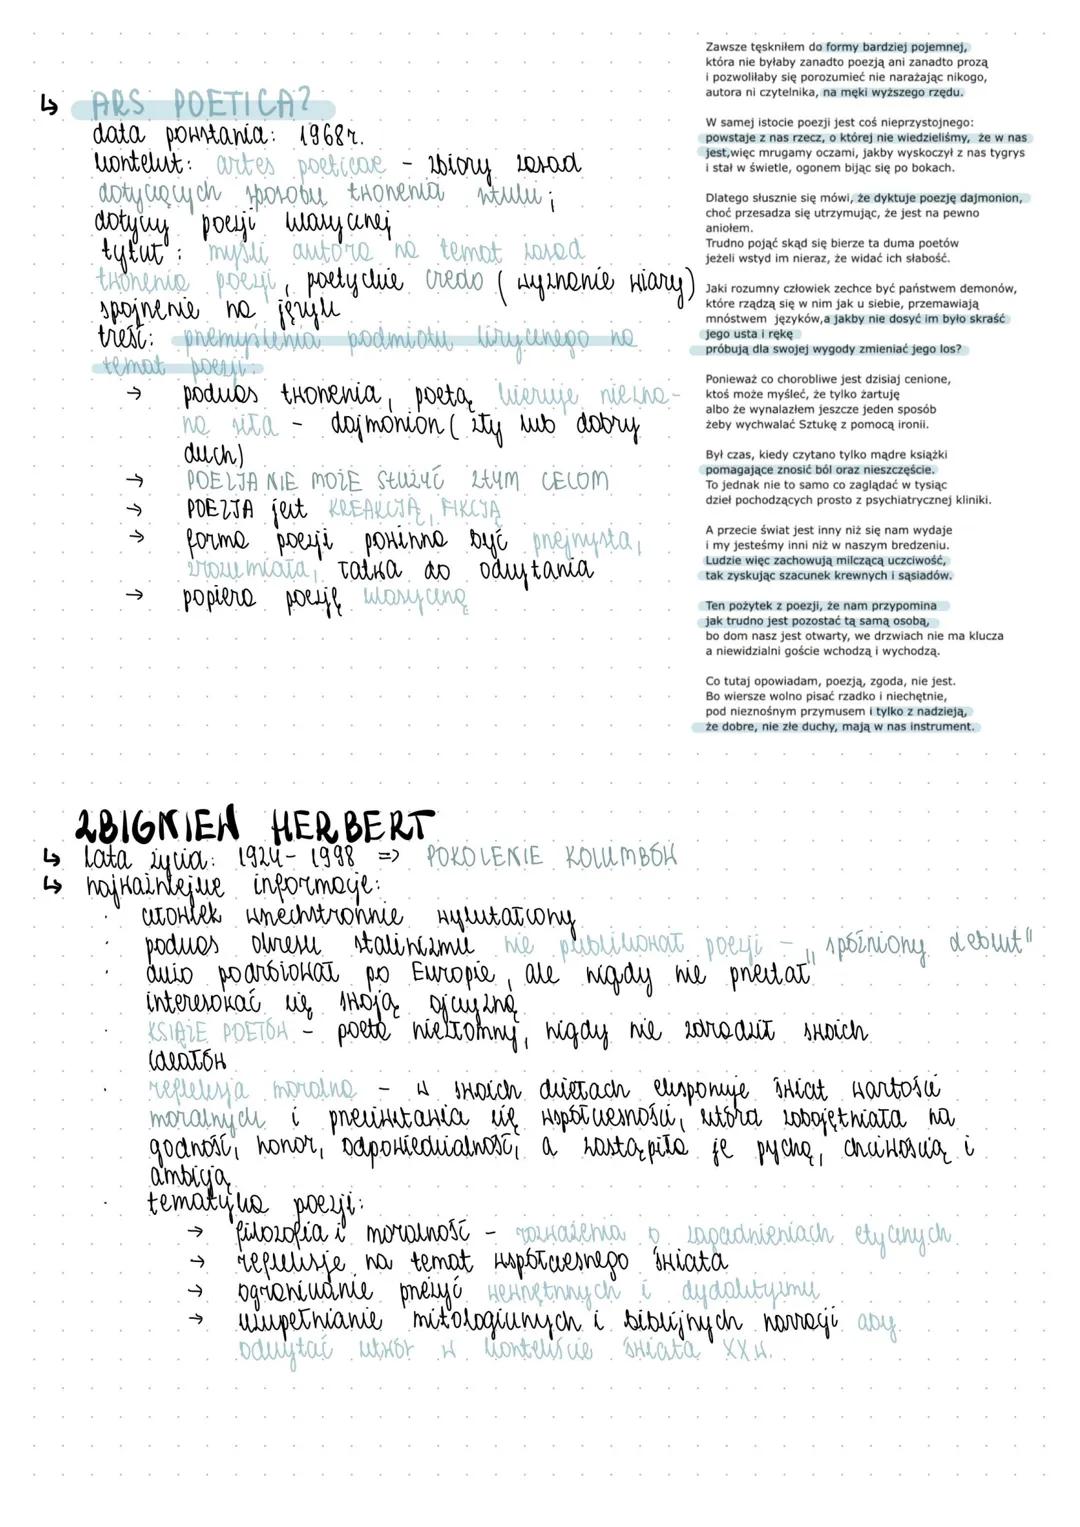 ↳ ARS POETICA?
data powstania: 1968r.
kontekst: artes poeticae - zbiory zasad
dotyczących sposobu tworzenia sztuki;
dotyczy poezji klasycznej
tytuł: myśli autora na temat zasad
tworzenia poezji, poetyckie credo (wyznanie wiary)
spojrzenie na języku
treść: przemyślenia podmiotu lirycznego na
temat poezji:
→ podczas tworzenia, poetą kieruje niezna-
na siła - dajmonion (zły lub dobry
duch)
→ POEZJA NIE MOŻE SŁUŻYĆ ZŁYM CELOM
→ POEZJA jest KREACJĄ, FIKCJĄ
→ forma poezji powinna być przejrzysta,
zrozumiała, łatwa do odczytania
→ popiera poezję klasyczną
Zawsze tęskniłem do formy bardziej pojemnej,
która nie byłaby zanadto poezją ani zanadto prozą
i pozwoliłaby się porozumieć nie narażając nikogo,
autora ni czytelnika, na męki wyższego rzędu.
W samej istocie poezji jest coś nieprzystojnego:
powstaje z nas rzecz, o której nie wiedzieliśmy, że w nas
jest,więc mrugamy oczami, jakby wyskoczył z nas tygrys
i stał w świetle, ogonem bijąc się po bokach.
Dlatego słusznie się mówi, że dyktuje poezję dajmonion,
choć przesadza się utrzymując, że jest na pewno
aniołem.
Trudno pojąć skąd się bierze ta duma poetów
jeżeli wstyd im nieraz, że widać ich słabość.
Jaki rozumny człowiek zechce być państwem demonów,
które rządzą się w nim jak u siebie, przemawiają
mnóstwem języków,a jakby nie dosyć im było skraść
jego usta i rękę
próbują dla swojej wygody zmieniać jego los?
Ponieważ co chorobliwe jest dzisiaj cenione,
ktoś może myśleć, że tylko żartuję
albo że wynalazłem jeszcze jeden sposób
żeby wychwalać Sztukę z pomocą ironii.
Był czas, kiedy czytano tylko mądre książki
pomagające znosić ból oraz nieszczęście.
To jednak nie to samo co zaglądać w tysiąc
dzieł pochodzących prosto z psychiatrycznej kliniki.
A przecie świat jest inny niż się nam wydaje
i my jesteśmy inni niż w naszym bredzeniu.
Ludzie więc zachowują milczącą uczciwość,
tak zyskując szacunek krewnych i sąsiadów.
Ten pożytek z poezji, że nam przypomina
jak trudno jest pozostać tą samą osobą,
bo dom nasz jest otwarty, we drzwiach nie ma klucza
a niewidzialni goście wchodzą i wychodzą.
Co tutaj opowiadam, poezją, zgoda, nie jest.
Bo wiersze wolno pisać rzadko i niechętnie,
pod nieznośnym przymusem i tylko z nadzieją,
że dobre, nie złe duchy, mają w nas instrument.
ZBIGNIEW HERBERT
↳ lata życia: 1924-1998 => POKOLENIE KOLUMBÓW
↳ najważniejsze informacje:
· człowiek wszechstronnie wykształcony
· podczas okresu stalinizmu nie publikował poezji - "spóźniony debiut"
· dużo podróżował po Europie, ale nigdy nie przestał
interesować się swoją ojczyzną
· KSIĄŻE POETÓW - poeta niezłomny, nigdy nie zdradził swoich
ideałów
· refleksja moralna - w swoich dziełach eksponuje świat wartości
moralnych i przeciwstawia się współczesności, która zobojętniała na
godność, honor, odpowiedzialność, a zastąpiła je pychą, chciwością i
ambicją
· tematyka poezji:
→ filozofia i moralność - rozważania o zagadnieniach etycznych
→ refleksje na temat współczesnego świata
→ ograniczanie przeżyć wewnętrznych i dydaktyzmu
→ uzupełnianie mitologicznych i biblijnych narracji aby
odczytać utwór w kontekście świata XX w.